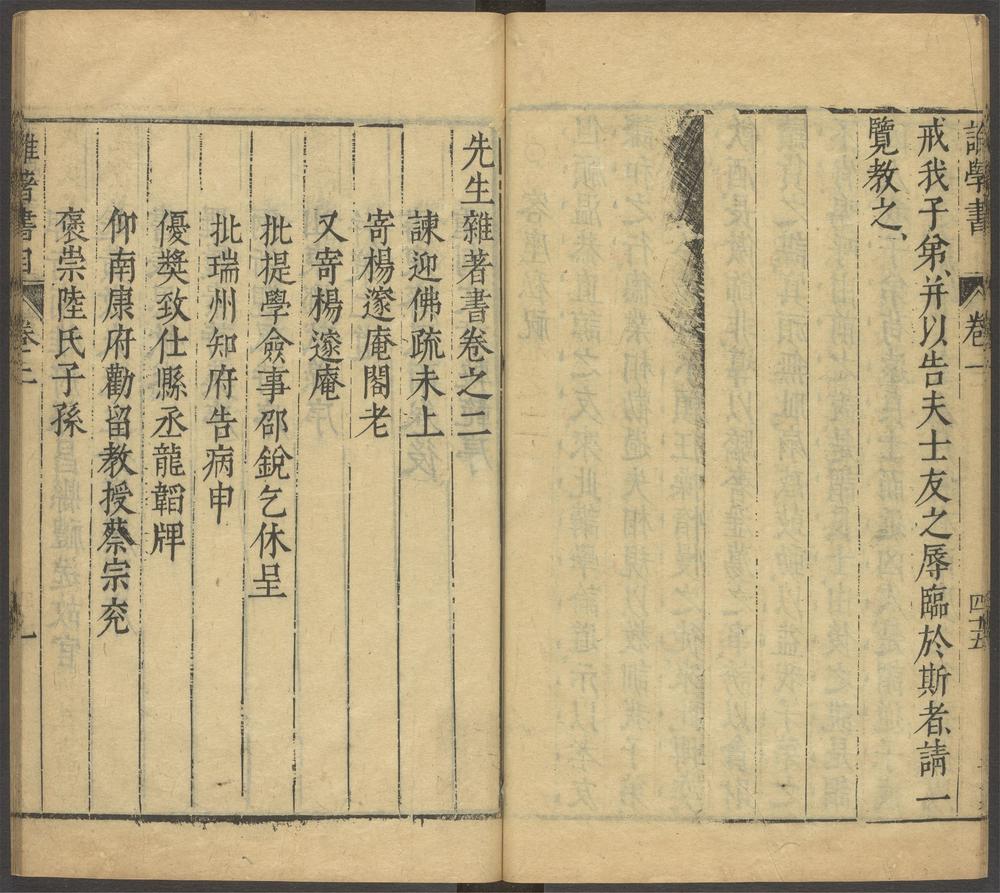 論學書
卷一
四十五
戒我子弟、并以告夫士友之辱臨於斯者、請一
覽教之、
先生雜著書卷之二
諫迎佛疏未上
寄楊邃庵閣老
又寄楊邃庵
批提學僉事邵銳乞休呈
批瑞州知府告病申
優獎致仕縣丞龍韜牌
仰南康府勸留教授蔡宗兖
褒崇陸氏子孫
雜著書目
卷二
一